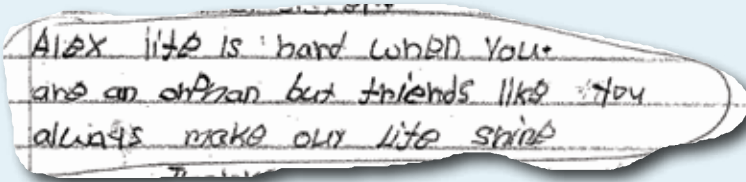 Alex life is hard when you
are an orphan but friends like you
always make our life shine